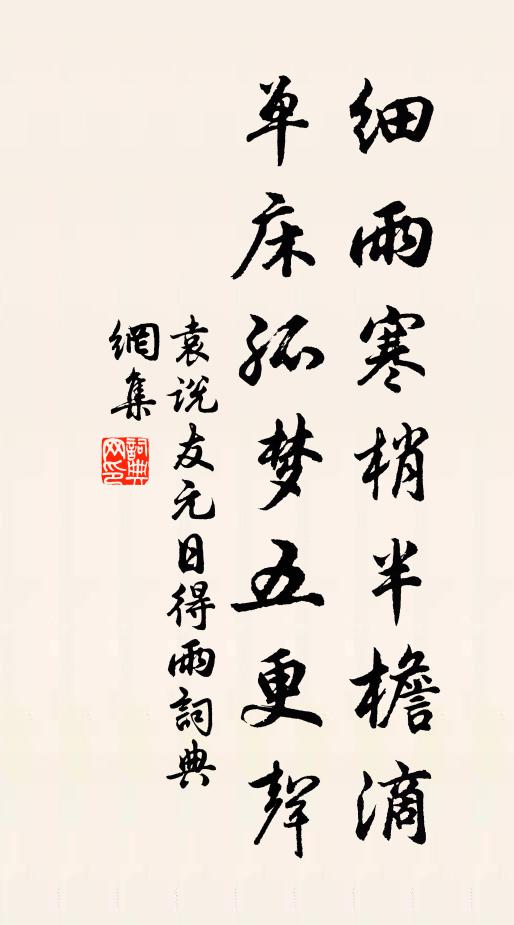 细雨寒梢半檐滴
单床孤梦五更聲
袁说友元日得雨詞典
網集
詞典網印